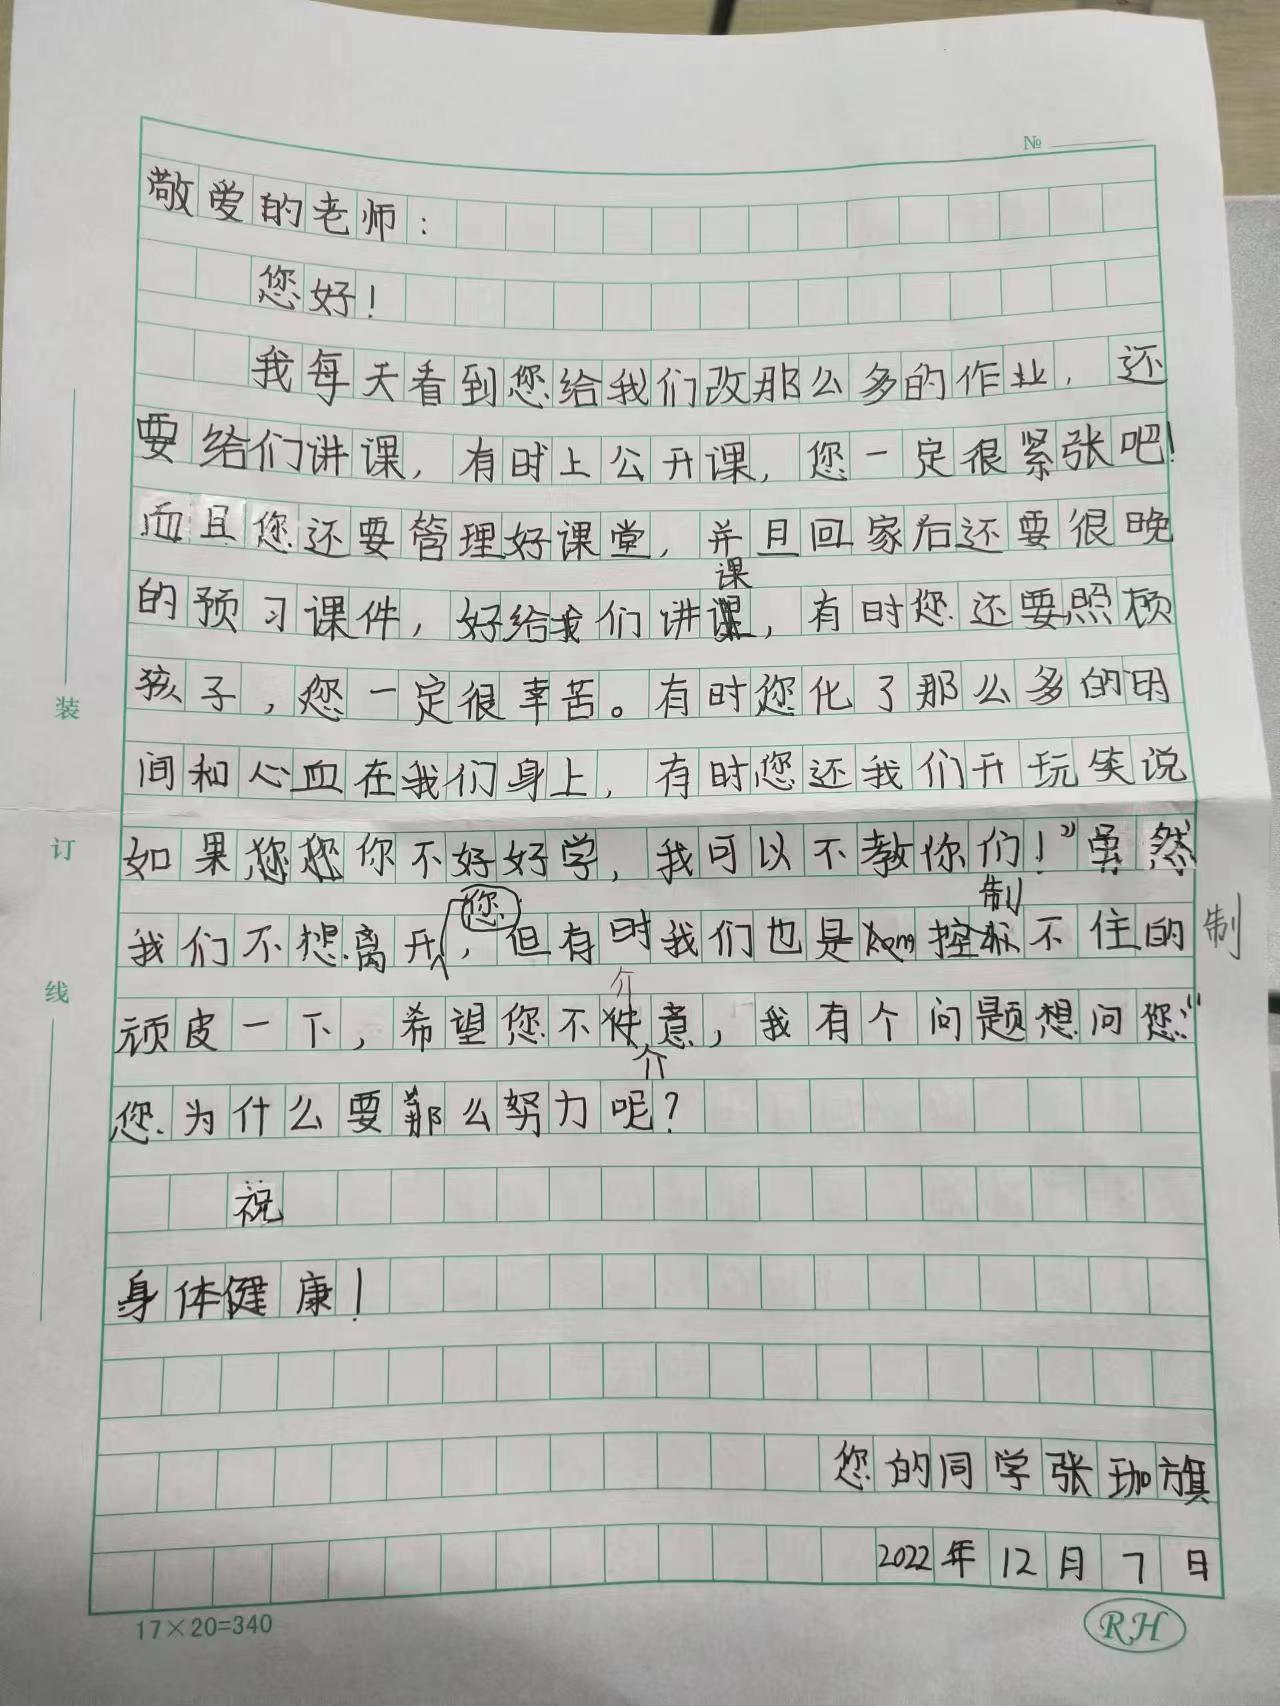 №
敬爱的老师：
您好！
我每天看到您给我们改那么多的作业，还
要给们讲课，有时上公开课，您一定很紧张吧！
而且您还要管理好课堂，并且回家后还要很晚
课
的预习课件，好给我们讲课，有时您还要照顾
孩子，您一定很辛苦。有时您化了那么多的时
间和心血在我们身上，有时您还我们开玩笑说
如果您您你不好好学，我可以不教你们！”虽然
您 制
我们不想离开，但有时我们也是控不住的 制
介
顽皮一下，希望您不意，我有个问题想问您：“
介
您为什么要那么努力呢？
祝
身体健康！
您的同学张珈旗
2022年12月7日
装
订
线
17×20=340
RH